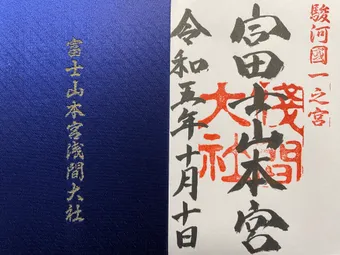 駿河國一之宮
富士山本宮
淺間
大社
令和五年十月十日
富士山本宮浅間大社